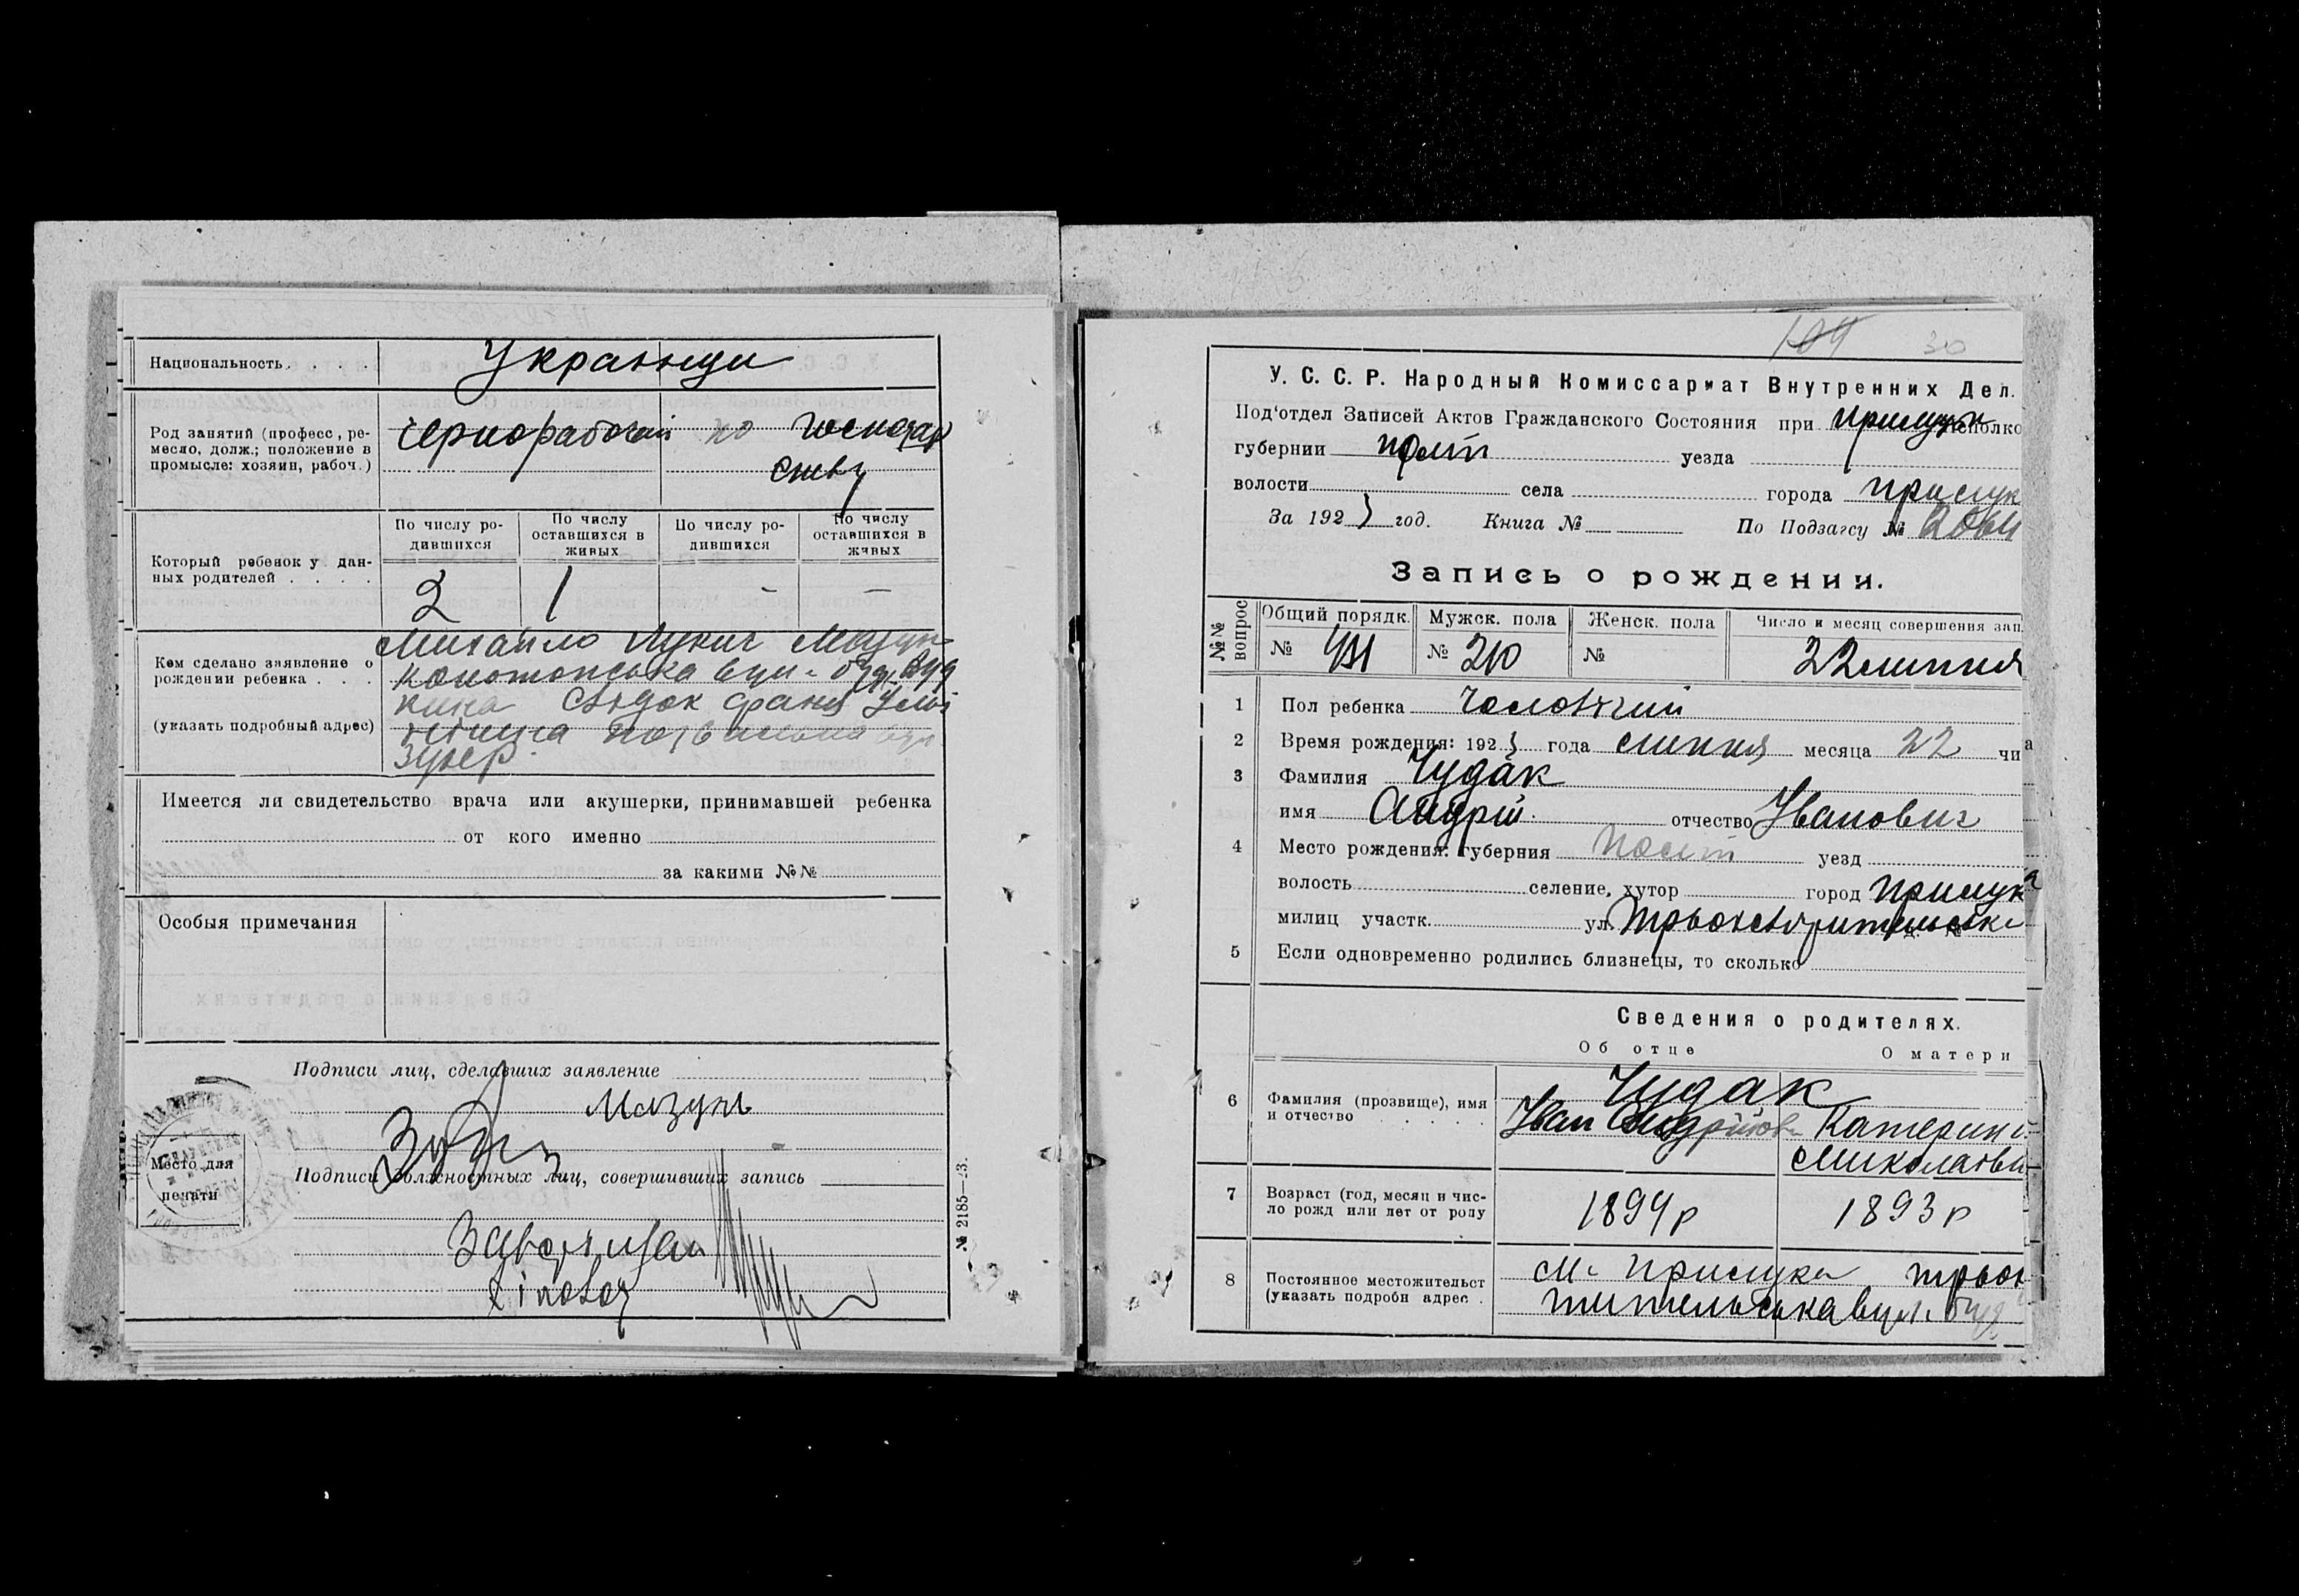 Национальность
Українци
Род занятий (професс, ре-
месло, долж.; положение в
промысле: хозяин, рабоч.)
чернорабочий по господар
ству
Который ребенок у дан-
ных родителей
По числу ро-
дившихся
По числу
оставшихся в
живых
По числу ро-
дившихся
По числу
оставшихся в
живых
2 1 — —
Кем сделано заявление о
рождении ребенка
(указать подробный адрес)
Михайло
Конотопська вул.
Свідок
Имеется ли свидетельство врача или акушерки, принимавшей ребенка
от кого именно
за какими №№
Особыя примечания
Подписи лиц, сделавших заявление
Мазун
Место для
печати
Подписи должностных лиц, совершивших запись
№ 2185—23.
109 30
У. С. С. Р. Народный Комиссариат Внутренних Дел.
Под'отдел Записей Актов Гражданского Состояния при Прилуцьк исполко
губернии Полт уезда
волости села города Прилук
За 1923 год. Книга № По Подзагсу № 2064
Запись о рождении.
№№ вопрос
Общий порядк. Мужск. пола Женск. пола Число и месяц совершения зап.
№ 431 № 210 № 22 липня
1 Пол ребенка чоловічий
2 Время рождения: 1923 года липня месяца 22 чи
3 Фамилия Чудак
имя Андрій отчество Іванович
4 Место рождения: губерния Полт уезд
волость селение, хутор город Прилука
милиц участк. ул. Трьохсвятительська
5 Если одновременно родились близнецы, то сколько
Сведения о родителях.
Об отце О матери
6 Фамилия (прозвище), имя
и отчество
Чудак
Іван Андрійов Катерина
Миколаївн
7 Возраст (год, месяц и чис-
ло рожд или лет от роду
1894 р 1893 р
8 Постоянное местожительст
(указать подробн адрес .
м. Прилука трьох
тительська вул. буд